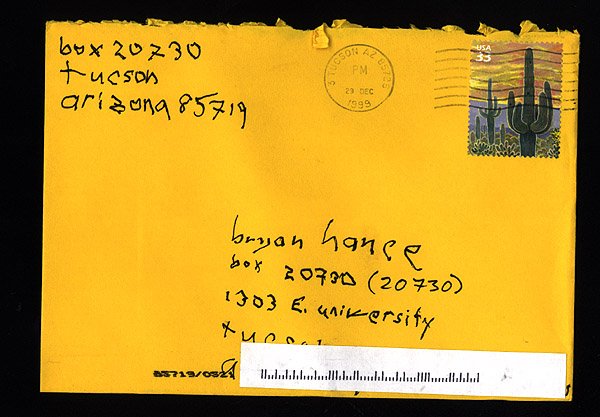 box 20730
tucson
arizona 85719
TUCSON AZ 85726
PM
29 DEC
1999
USA
33
bryan hance
box 20730 (20730)
1303 E. university
85719/0521